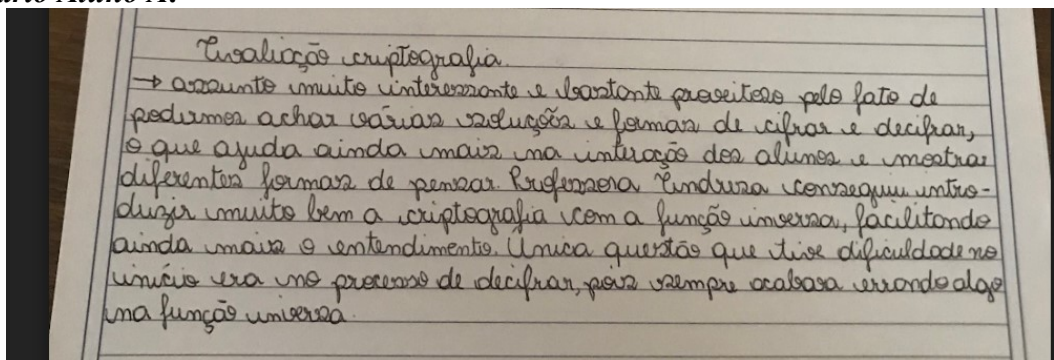 Avaliação criptografia.
→ assunto muito interessante e bastante proveitoso pelo fato de
podermos achar várias soluções e formas de cifrar e decifrar,
o que ajuda ainda mais na interação dos alunos e mostrar
diferentes formas de pensar. Professora Andruza conseguiu intro-
duzir muito bem a criptografia com a função inversa, facilitando
ainda mais o entendimento. Única questão que tive dificuldade no
início era no processo de decifrar, pois sempre acabava errando algo
na função inversa.